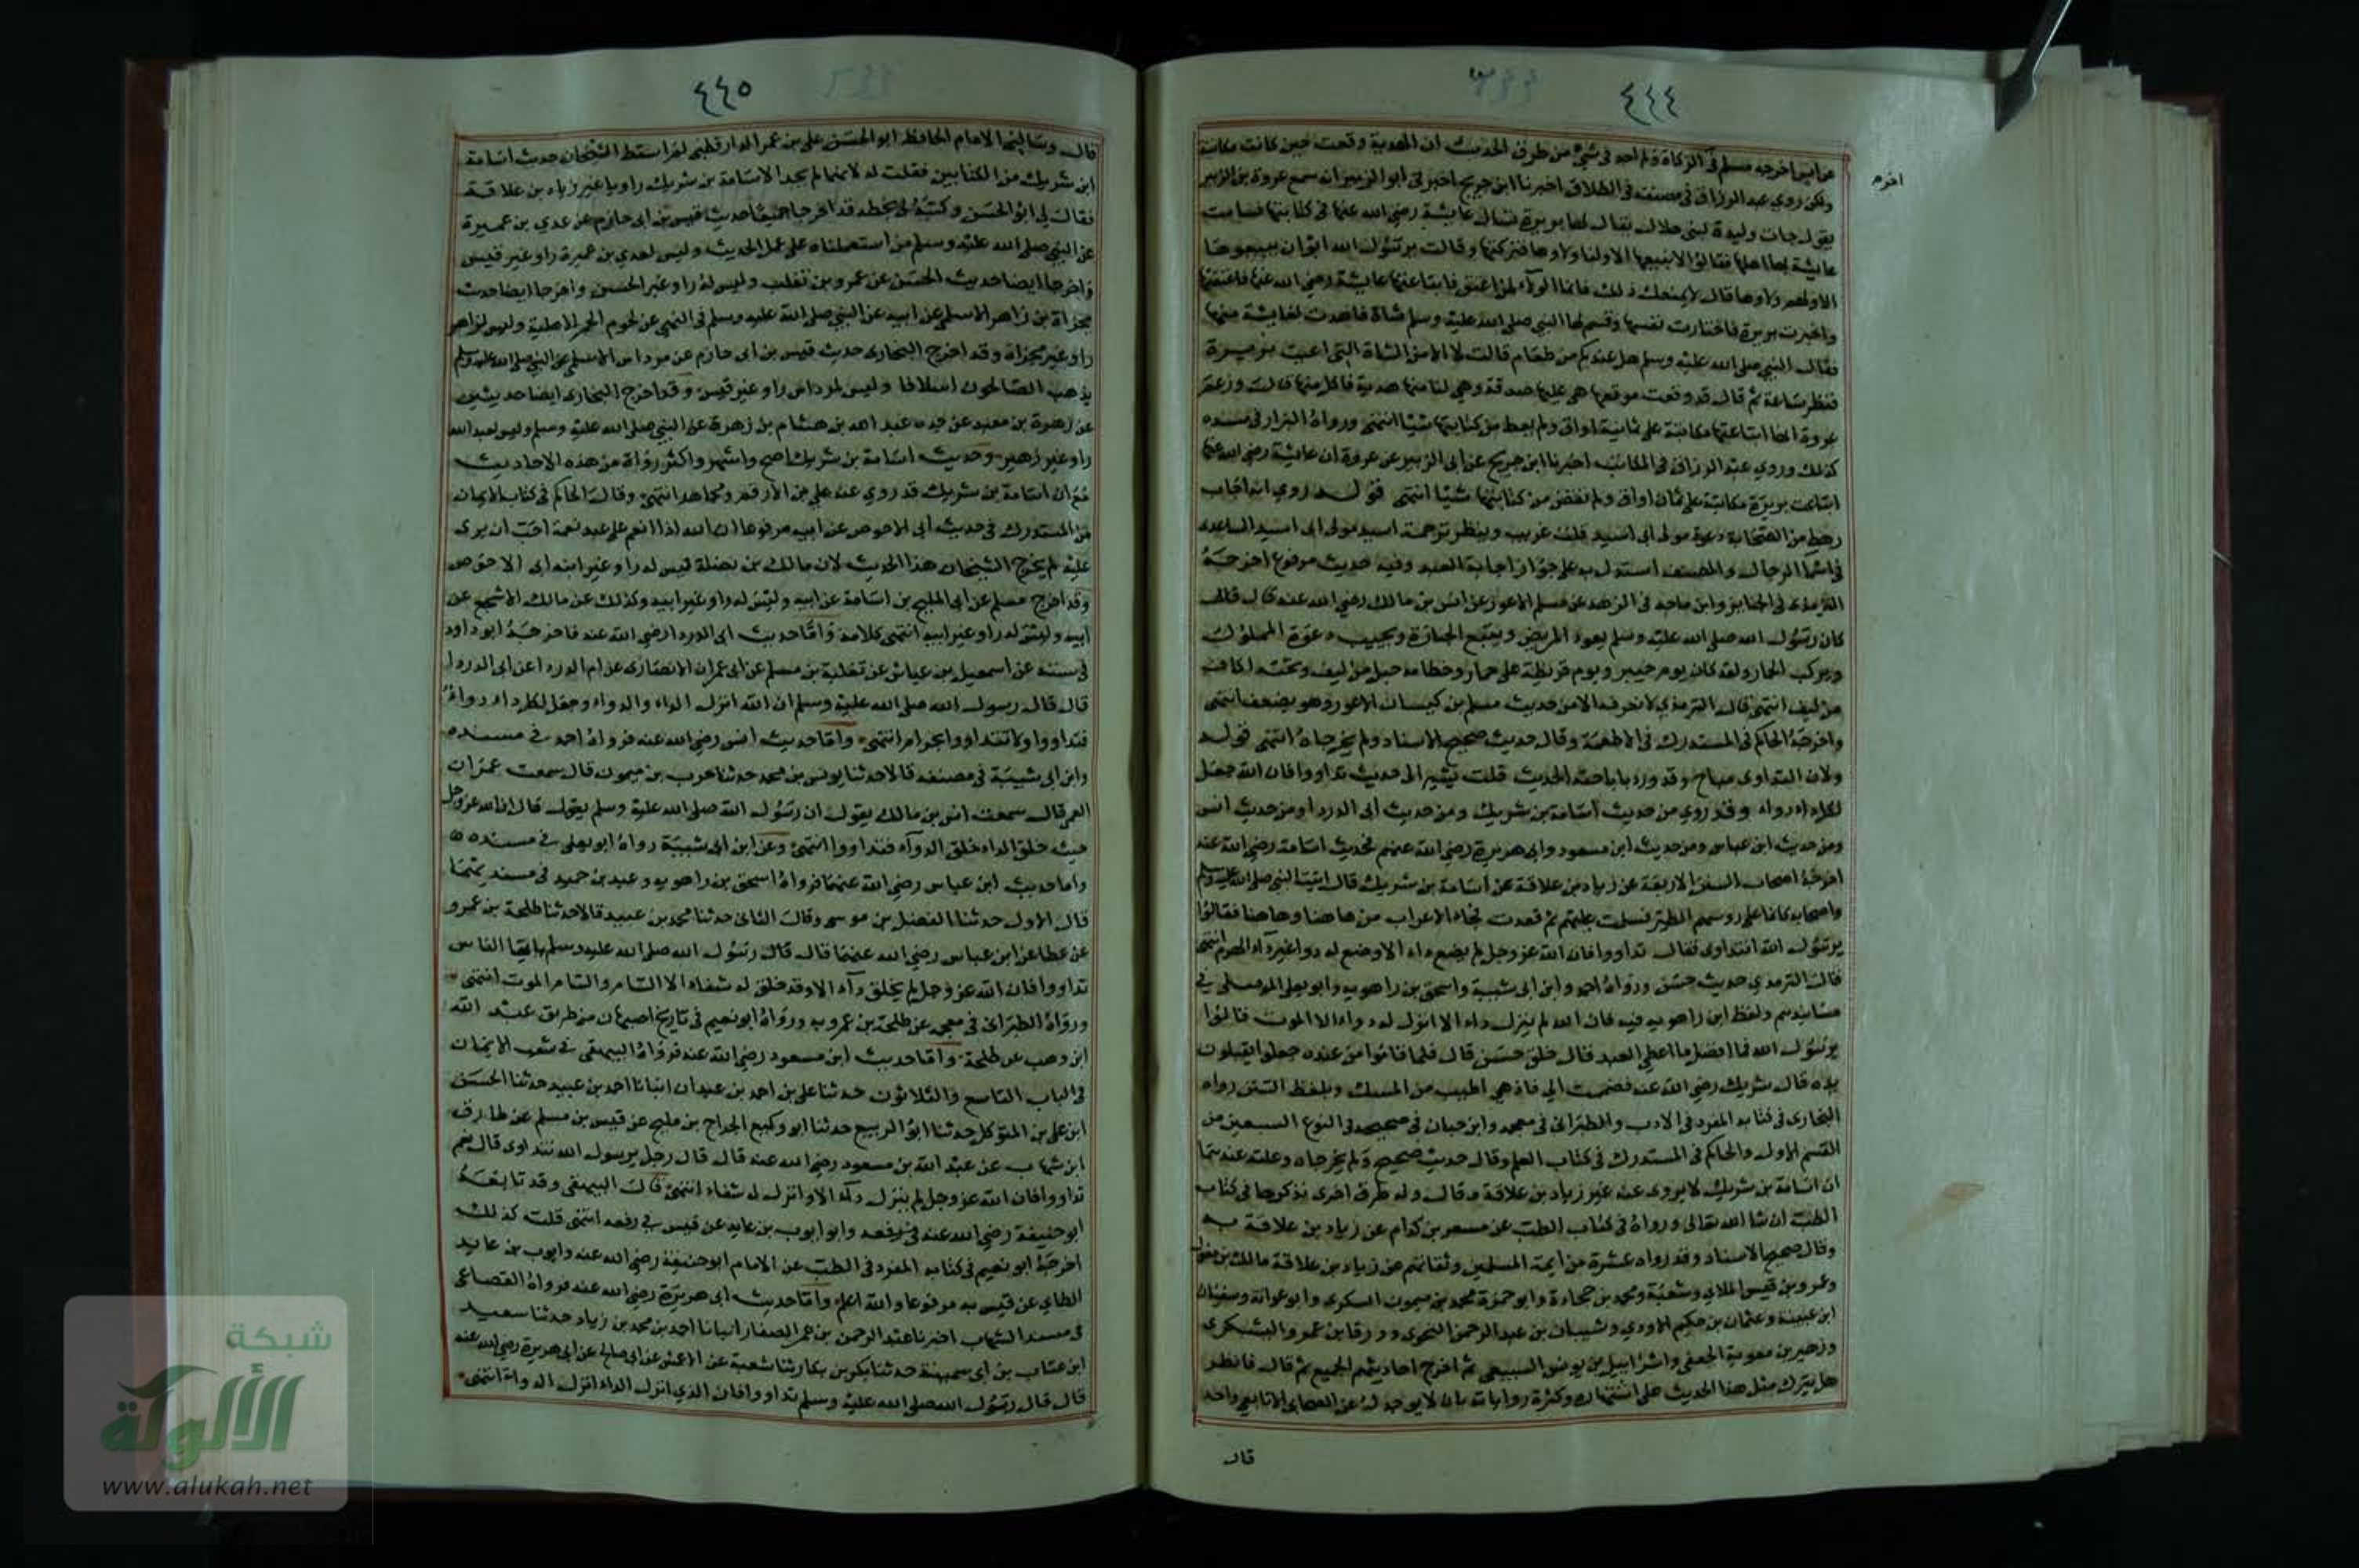 ٤٤٤
اخرجه
عن انس اخرجه مسلم في الزكاة ولم اجد في شيء من طرق الحديث ان الهدية وقعت حين كانت مكاتبة
ولكن روي عبد الرزاق في مصنفه في الطلاق اخبرنا ابن جريج اخبرني ابو الزبير انه سمع عروة بن الزبير
يقول جات وليدة لبني هلال يقال لها بريرة تسال عايشة رضي الله عنها في كتابتها فسامت
عايشة بها اهلها فقالوا لا نبيعها الا ولنا ولاوها فتركتها وقالت يرسول الله ابوا ان يبيعوها
الا ولهم ولاوها قال لا يمنعك ذلك فانما الولاء لمن اعتق فابتاعتها عايشة رضي الله عنها فاعتقتها
وخيرت بريرة فاختارت نفسها وقسم لها النبي صلى الله عليه وسلم شاة فاهدت لعايشة منها
فقال النبي صلى الله عليه وسلم هل عندكم من طعام قالت لا الا من الشاة التي اعطيت بريرة
فنظر ساعة ثم قال قد وقعت موقعها هي عليها صدقة وهي لنا منها هدية فاكل منها قالت وزعم
عروة انها ابتاعتها مكاتبة على ثمانية اواق ولم يعط من كتابتها شيا انتهى ورواه البزار في مسنده
كذلك وروي عبد الرزاق في المكاتب اخبرنا ابن جريج عن ابي الزبير عن عروة ان عايشة رضي الله عنها
ابتاعت بريرة مكاتبة على ثمان اواق ولم تقض من كتابتها شيا انتهى قوله روي انه اجاب
رهط من الصحابة دعوة مولى ابي اسيد قلت غريب وينظر ترجمة اسيد مولى ابي اسيد الساعدي
في اسما الرجال والمصنف استدل به على جواز اجابة العبد وفيه حديث مرفوع اخرجه
الترمذي في الجنايز وابن ماجه في الزهد عن مسلم الاعور عن انس بن مالك رضي الله عنه قال
كان رسول الله صلى الله عليه وسلم يعود المريض ويتبع الجنازة ويجيب دعوة المملوك
ويركب الحمار ولقد كان يوم خيبر ويوم قريظة على حمار وخطامه حبل من ليف وتحته اكاف
من ليف انتهى قال الترمذي لا نعرفه الا من حديث مسلم بن كيسان الاعور وهو يضعف انتهى
واخرجه الحاكم في المستدرك في الاطعمة وقال حديث صحيح الاسناد ولم يخرجاه انتهى قوله
ولان التداوي مباح وقد ورد باباحته الحديث قلت يشير الى حديث تداووا فان الله جعل
لكل داء دواء وقد روي من حديث اسامة بن شريك ومن حديث ابي الدرداء ومن حديث انس
ومن حديث ابن عباس ومن حديث ابن مسعود وابي هريرة رضي الله عنهم فحديث اسامة رضي الله عنه
اخرجه اصحاب السنن الاربعة عن زياد بن علاقة عن اسامة بن شريك قال اتيت النبي صلى الله عليه وسلم
واصحابه كانما على روسهم الطير فسلمت عليهم ثم قعدت فجاء الاعراب من هاهنا وهاهنا فقالوا
يرسول الله انتداوى فقال تداووا فان الله عز وجل لم يضع داء الا وضع له دوا غير داء الهرم انتهى
قال الترمذي حديث حسن ورواه احمد وابن ابي شيبة واسحق بن راهويه وابو يعلى الموصلي في
مسانيدهم ولفظ ابن راهويه فيه فان الله لم ينزل داء الا انزل له دواء الا الموت قالوا
يرسول الله فما افضل ما اعطي العبد قال خلق حسن قال فلما قاموا من عنده جعلوا يقبلون
يده قال شريك رضي الله عنه فضممت الي فاذ هي اطيب من المسك وبلفظ السنن رواه
البخاري في كتابه المفرد في الادب والطبراني في معجمه وابن حبان في صحيحه في النوع السبعين من
القسم الاول والحاكم في المستدرك في كتاب العلم وقال حديث صحيح ولم يخرجاه وعلته عندهما
ان اسامة بن شريك لا يروى عنه غير زياد بن علاقة قال وله طرق اخرى نذكرها في كتاب
الطب ان شا الله تعالى ورواه في كتاب الطب عن مسعر بن كدام عن زياد بن علاقة به
وقال صحيح الاسناد وقد رواه عشرة من ايمة المسلمين وثقاتهم عن زياد بن علاقة مالك بن مغول
وعمرو بن قيس الملاي وشعبة ومحمد بن جحادة وابو حمزة محمد بن ميمون السكري وابو عوانة وسفيان
ابن عيينة وعثمان بن حكيم الاودي وشيبان بن عبد الرحمن النحوي وورقا بن عمرو اليشكري
وزهير بن معوية الجعفي واسرائيل بن يونس السبيعي ثم اخرج احاديثهم الجميع ثم قال فانظر
هل يترك مثل هذا الحديث على اشتهاره وكثرة رواياته بان لا يوجد له عن الصحابي الا تابعي واحد
قال
٤٤٥
قال وسالني الامام الحافظ ابو الحسن علي بن عمر الدارقطني لم اسقط الشيخان حديث اسامة
ابن شريك من الكتابين فقلت له لانهما لم يجدا لاسامة بن شريك راويا غير زياد بن علاقة
فقال لي ابو الحسن وكتبه لي بخطه قد اخرجا جميعا حديث قيس بن ابي حازم عن عدي بن عميرة
عن النبي صلى الله عليه وسلم من استعملناه على عمل الحديث وليس لعدي بن عميرة راو غير قيس
واخرجا ايضا حديث الحسن عن عمرو بن تغلب وليس له راو غير الحسن واخرجا ايضا حديث
مجزاة بن زاهر الاسلمي عن ابيه عن النبي صلى الله عليه وسلم في النهي عن لحوم الحمر الاهلية وليس لزاهر
راو غير مجزاة وقد اخرج البخاري حديث قيس بن ابي حازم عن مرداس الاسلمي عن النبي صلى الله عليه وسلم
يذهب الصالحون اسلافا وليس لمرداس راو غير قيس وقد اخرج البخاري ايضا حديثين
عن زهرة بن معبد عن جده عبد الله بن هشام بن زهرة عن النبي صلى الله عليه وسلم وليس لعبد الله
راو غير زهير وحديث اسامة بن شريك اصح واشهر واكثر رواة من هذه الاحاديث
ثم ان اسامة بن شريك قد روي عنه علي بن الاقمر ومجاهد انتهى وقال الحاكم في كتاب الايمان
من المستدرك في حديث ابي الاحوص عن ابيه مرفوعا ان الله اذا انعم على عبد نعمة احب ان يرى
عليه لم يخرج الشيخان هذا الحديث لان مالك بن نضلة ليس له راو غير ابنه ابي الاحوص
وقد اخرج مسلم عن ابي المليح بن اسامة عن ابيه وليس له راو غير ابيه وكذلك عن مالك الاشجعي عن
ابيه وليس له راو غير ابيه انتهى كلامه واما حديث ابي الدرداء رضي الله عنه فاخرجه ابو داود
في سننه عن اسمعيل بن عياش عن ثعلبة بن مسلم عن ابي عمران الانصاري عن ام الدرداء عن ابي الدرداء
قال قال رسول الله صلى الله عليه وسلم ان الله انزل الداء والدواء وجعل لكل داء دواء
فتداووا ولا تتداووا بحرام انتهى واما حديث انس رضي الله عنه فرواه احمد في مسنده
وابن ابي شيبة في مصنفه قالا حدثنا يونس بن محمد حدثنا حرب بن ميمون قال سمعت عمران
العمي قال سمعت انس بن مالك يقول ان رسول الله صلى الله عليه وسلم يقول قال ان الله عز وجل
حيث خلق الداء خلق الدواء فتداووا انتهى وعن ابن ابي شيبة رواه ابو يعلى في مسنده
واما حديث ابن عباس رضي الله عنهما فرواه اسحق بن راهويه وعبد بن حميد في مسنديهما
قال الاول حدثنا الفضل بن موسى وقال الثاني حدثنا محمد بن عبيد قالا حدثنا طلحة بن عمرو
عن عطا عن ابن عباس رضي الله عنهما قال قال رسول الله صلى الله عليه وسلم يا ايها الناس
تداووا فان الله عز وجل لم يخلق داء الا وقد خلق له شفاء الا السام والسام الموت انتهى
ورواه الطبراني في معجمه عن طلحة بن عمرو به ورواه ابو نعيم في تاريخ اصبهان من طريق عبد الله
ابن وهب عن طلحة واما حديث ابن مسعود رضي الله عنه فرواه البيهقي في شعب الايمان
في الباب التاسع والثلاثون حدثنا علي بن احمد بن عبدان انبانا احمد بن عبيد حدثنا الحسن
ابن علي بن المتوكل حدثنا ابو الربيع حدثنا ابو وكيع الجراح بن مليح عن قيس بن مسلم عن طارق
ابن شهاب عن عبد الله بن مسعود رضي الله عنه قال قال رجل يرسول الله نتداوى قال نعم
تداووا فان الله عز وجل لم ينزل داء الا وانزل له شفاء انتهى قال البيهقي وقد تابعه
ابو حنيفة رضي الله عنه في رفعه وابو ايوب بن عايد عن قيس في رفعه انتهى قلت كذلك
اخرجه ابو نعيم في كتابه المفرد في الطب عن الامام ابو حنيفة رضي الله عنه وايوب بن عايد
الطاي عن قيس به مرفوعا والله اعلم واما حديث ابي هريرة رضي الله عنه فرواه القضاعي
في مسند الشهاب اخبرنا عبد الرحمن بن عمر الصفار انبانا احمد بن محمد بن زياد حدثنا سعيد
ابن عتاب بن ابي حدثنا بكر بن بكار ثنا شعبة عن الاعمش عن ابي صالح عن ابي هريرة رضي الله عنه
قال قال رسول الله صلى الله عليه وسلم تداووا فان الذي انزل الداء انزل الدواء انتهى
شبكة
الألوكة
www.alukah.net